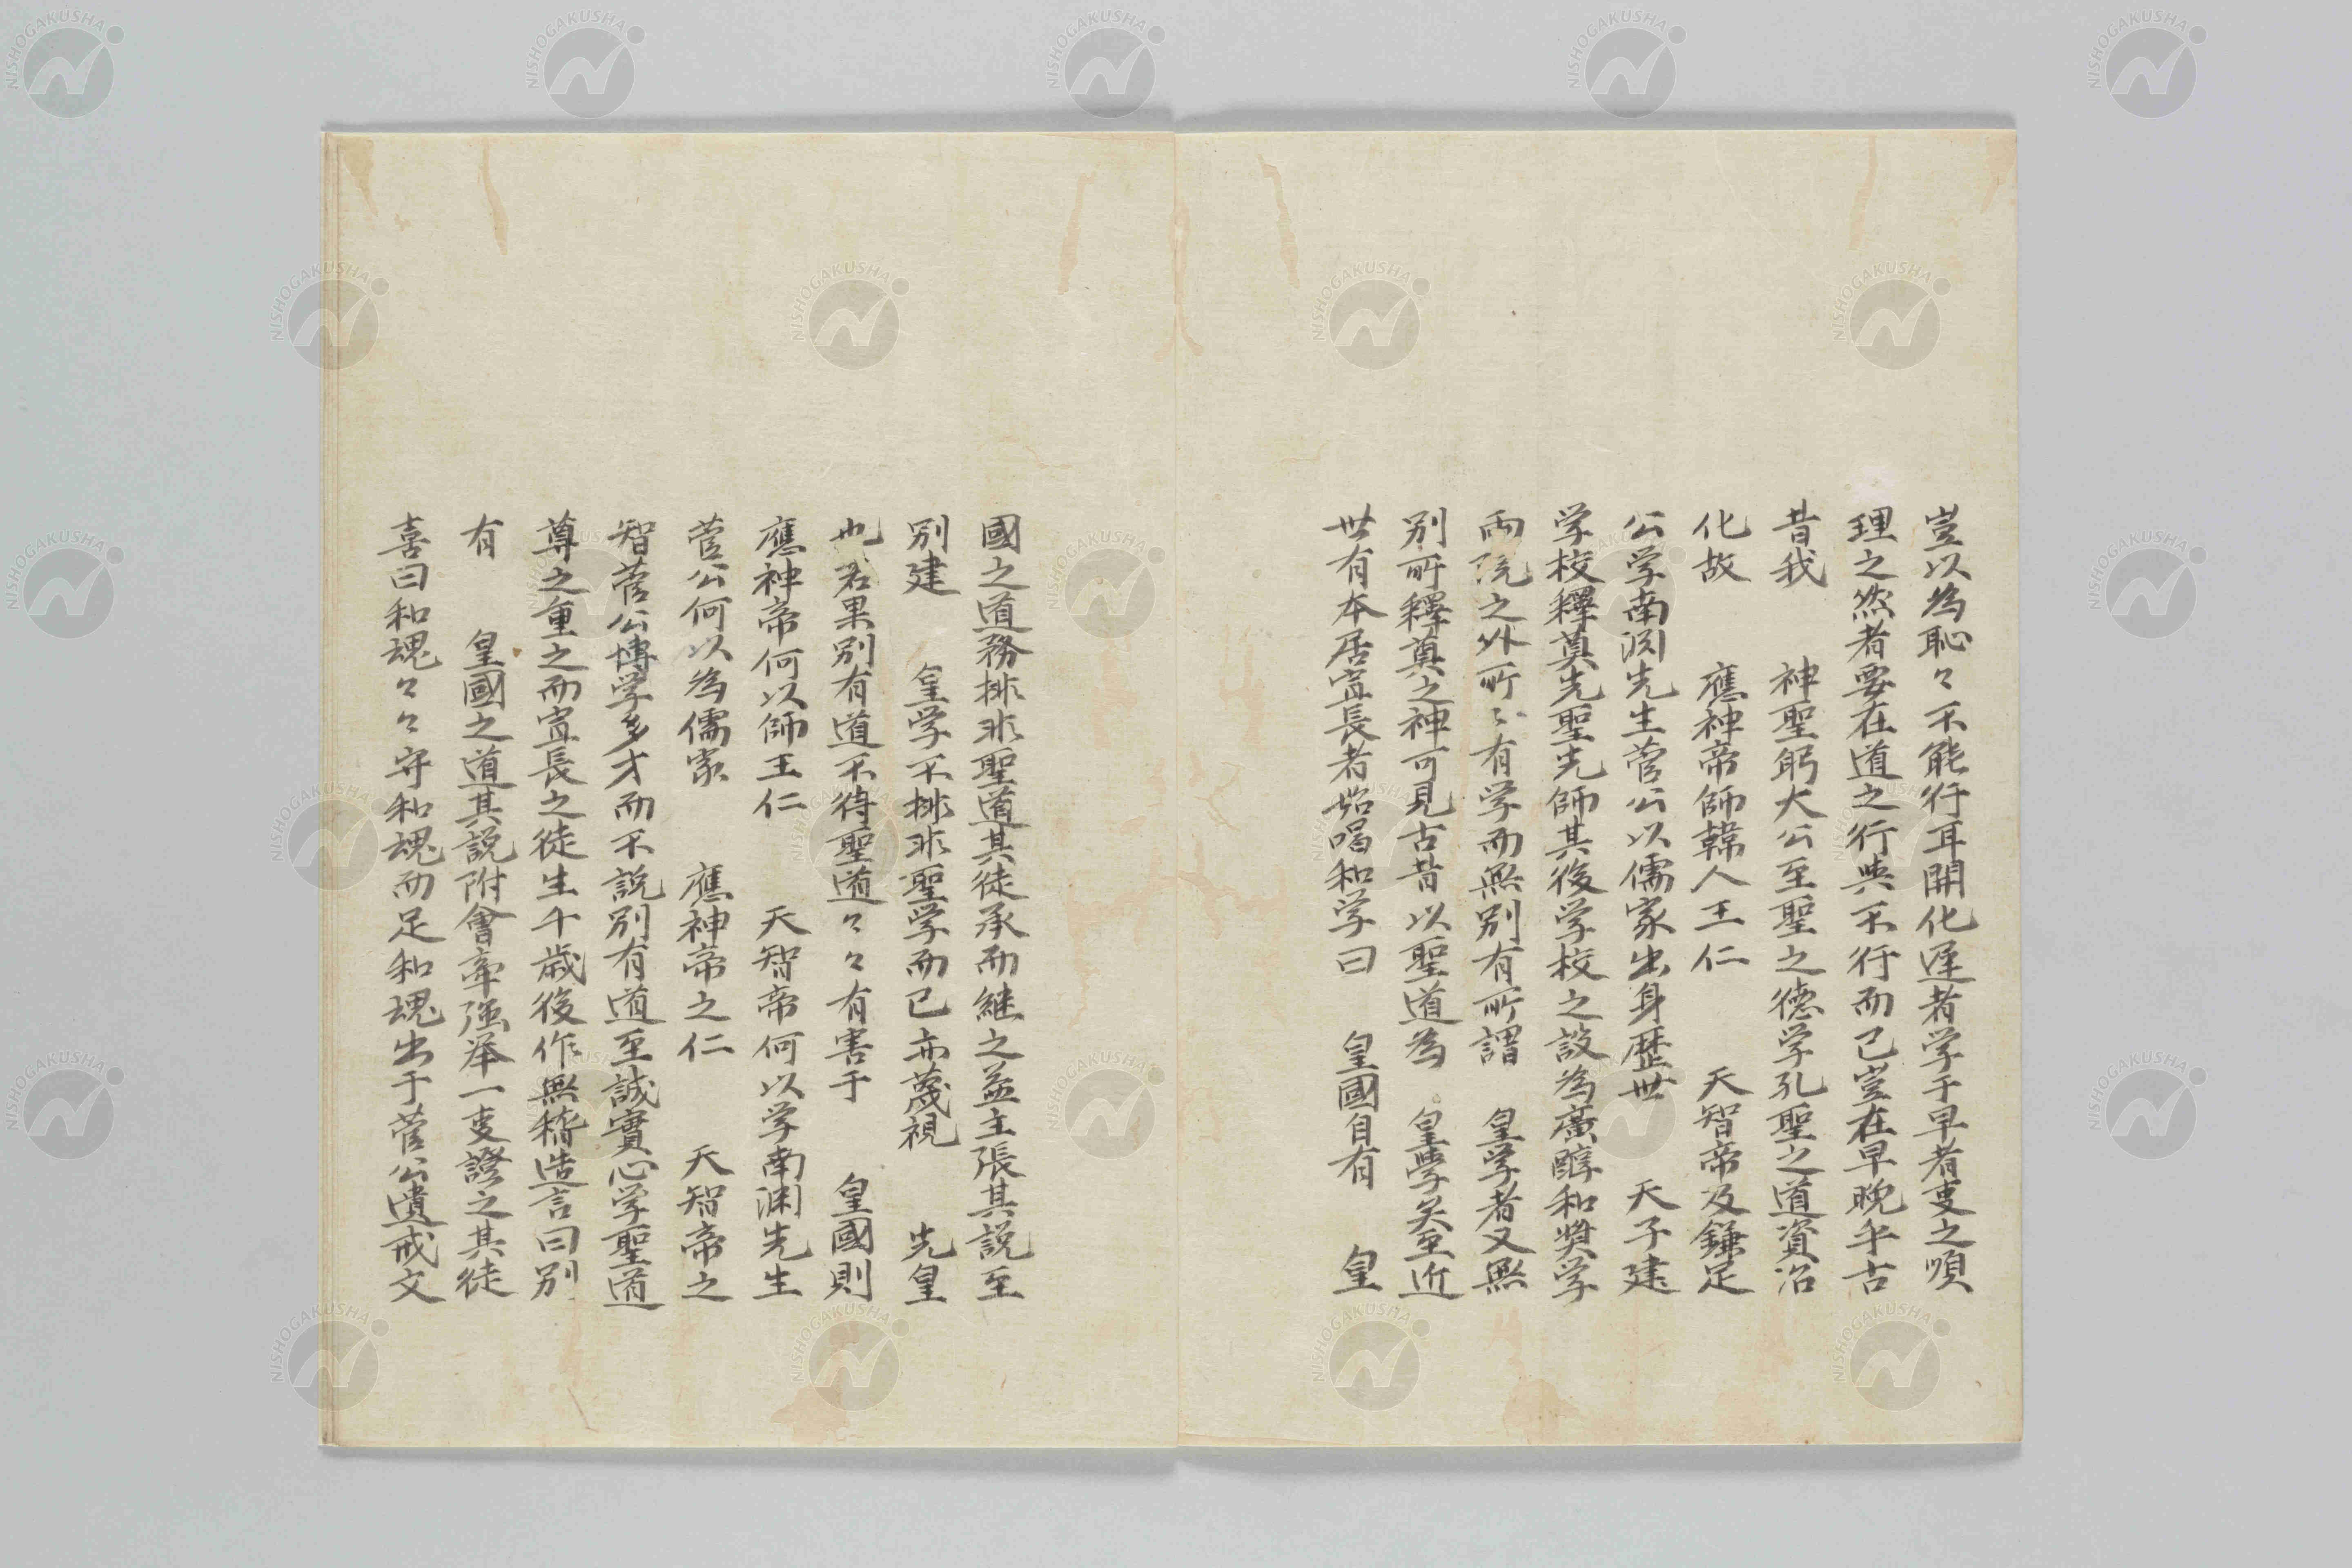 豈以為恥々不能行耳開化遅者学于早者事之順
理之然者要在道之行與不行而已豈在早晩乎古
昔我　神聖躬大公至聖之德学孔聖之道資治
化故　應神帝師韓人王仁　天智帝及鎌足
公学南渕先生菅公以儒家出身歴世　天子建
学校釋奠先聖先師其後学校之設為廣醇和奨学
両院之外所々有学而無別有所謂　皇学者又無
別所釋奠之神可見古昔以聖道為　皇學矣至近
世有本居宣長者始唱和学曰　皇國自有　皇
國之道務排非聖道其徒承而継之益主張其説至
別建　皇学不排非聖学而已亦蔑視　先皇
也若果別有道不待聖道々々有害于　皇國則
應神帝何以師王仁　天智帝何以学南渊先生
菅公何以為儒家　應神帝之仁　天智帝之
智菅公博学多才而不説別有道至誠實心学聖道
尊之重之而宣長之徒生千歳後作無稽造言曰別
有　皇國之道其説附會牽强举一事證之其徒
喜曰和魂々々守和魂而足和魂出于菅公遺戒文
NISHOGAKUSHA